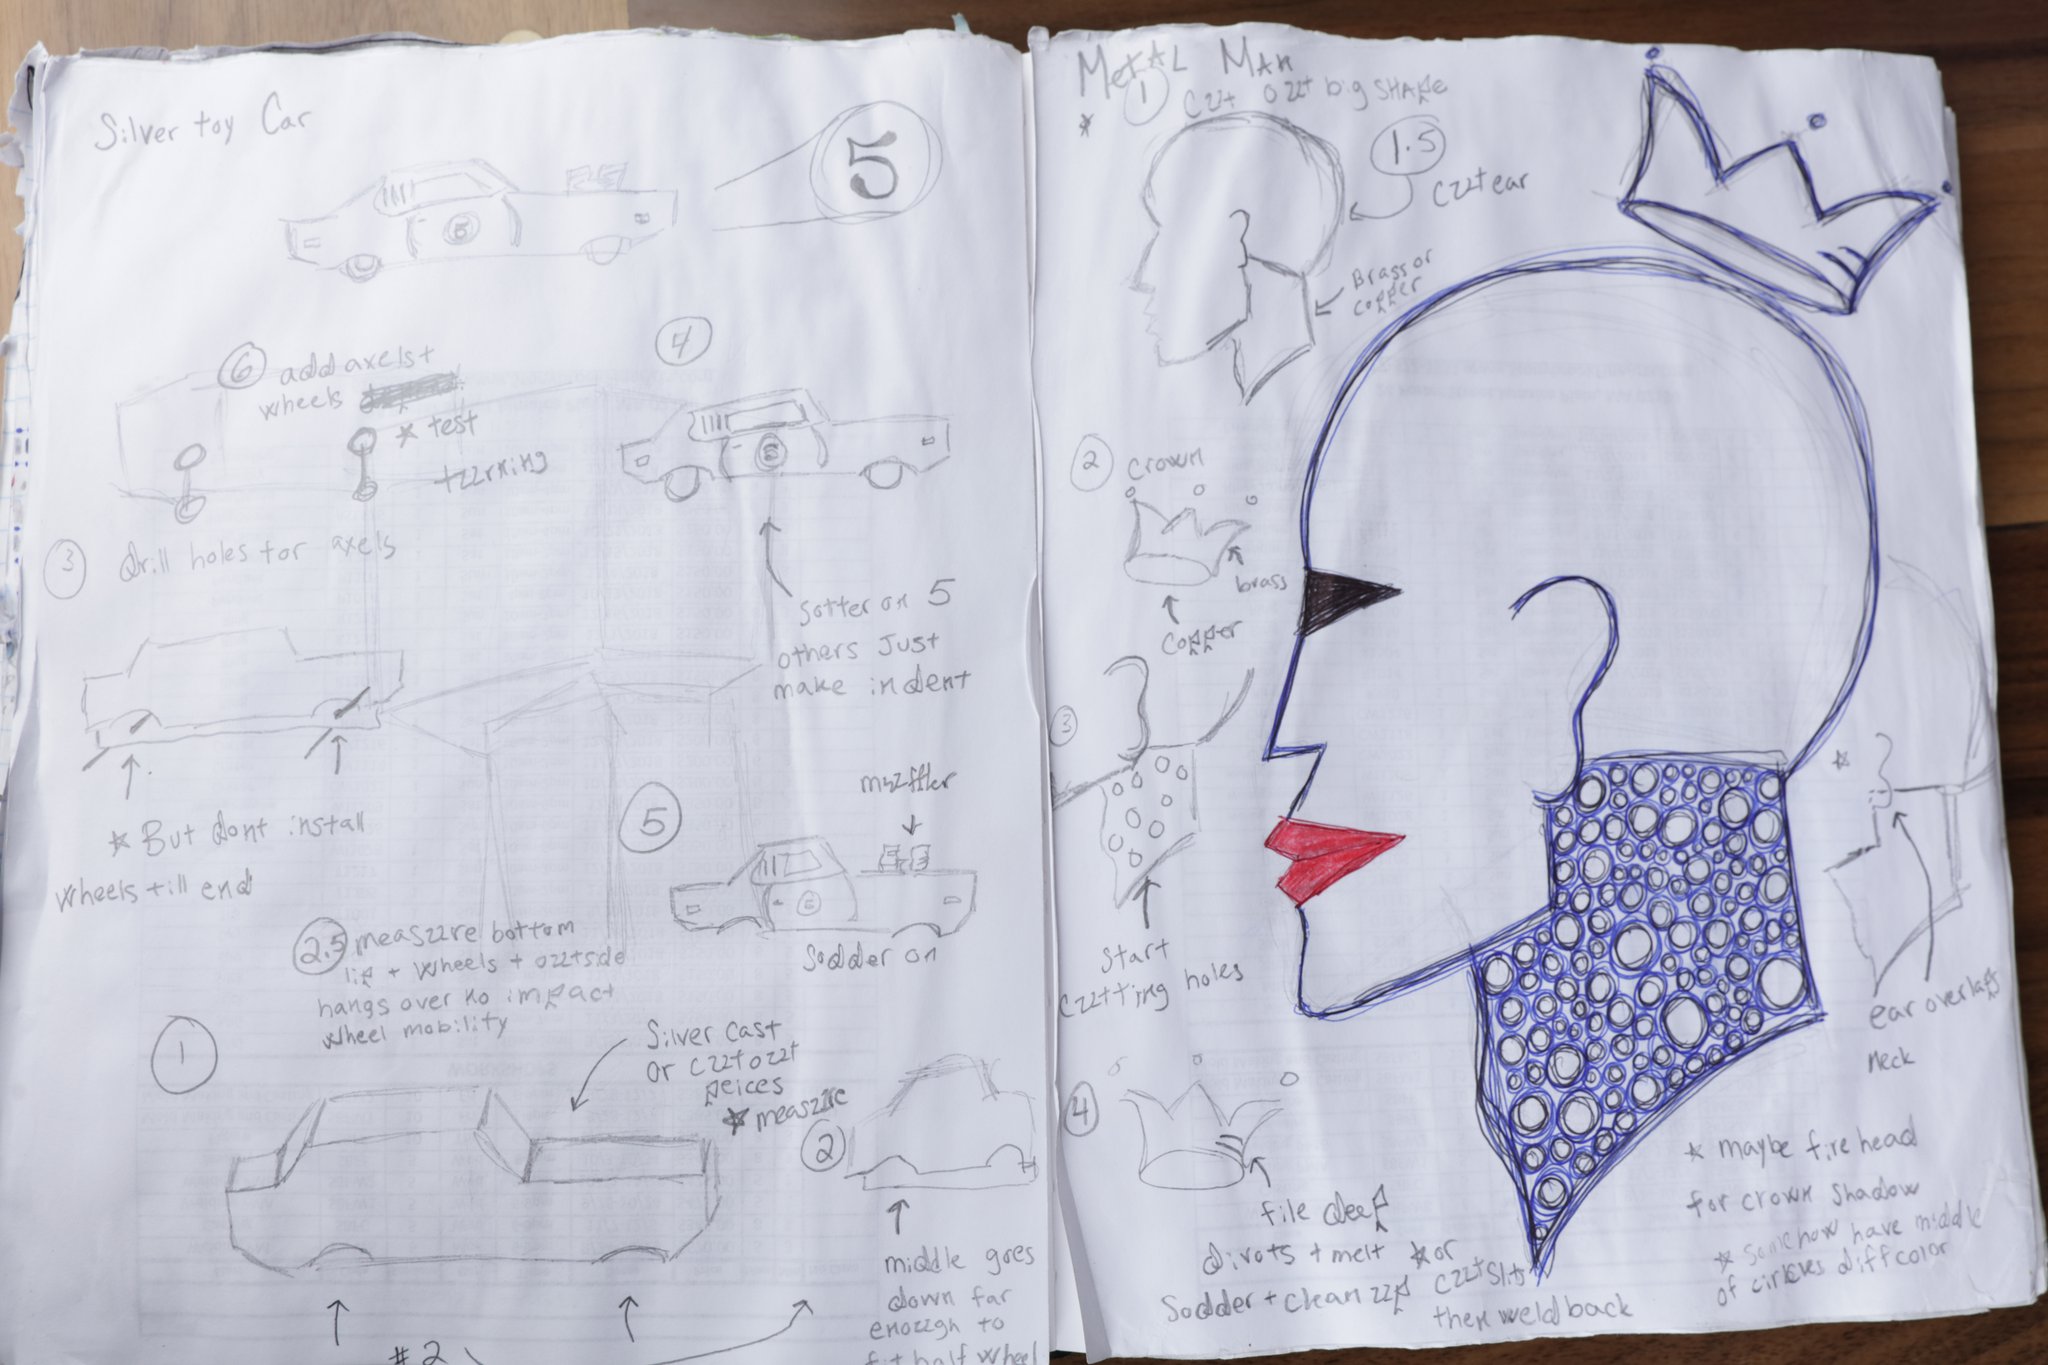 Silver toy Car
5
5
6 add axels +
wheels
* test
turning
4
5
sotter on 5
others Just
make indent
3 drill holes for axels
* But dont install
wheels till end
5
muffler
5
Sodder on
2.5 measure bottom
lip + wheels + outside
hangs over no impact
wheel mobility
1
Silver cast
or cut out
peices
* measure
2
middle goes
down far
enough to
fit half wheel
#2
Metal Man
* 1 Cut out big SHAPE
1.5
Cut ear
Brass or
copper
2 crown
brass
copper
3
Start
cutting holes
4
file deep
divots + melt
Sodder + clean up
* or
cut slits
then weld back
*
ear overlaps
neck
* maybe fire head
for crown shadow
* somehow have middle
of circles diff color